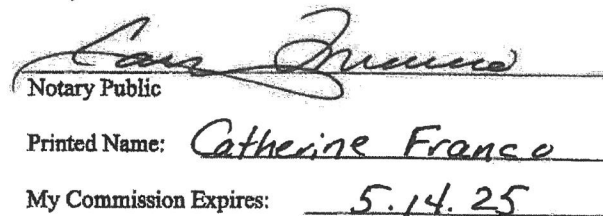 Notary Public
Printed Name: Catherine Franco
My Commission Expires: 5.14.25